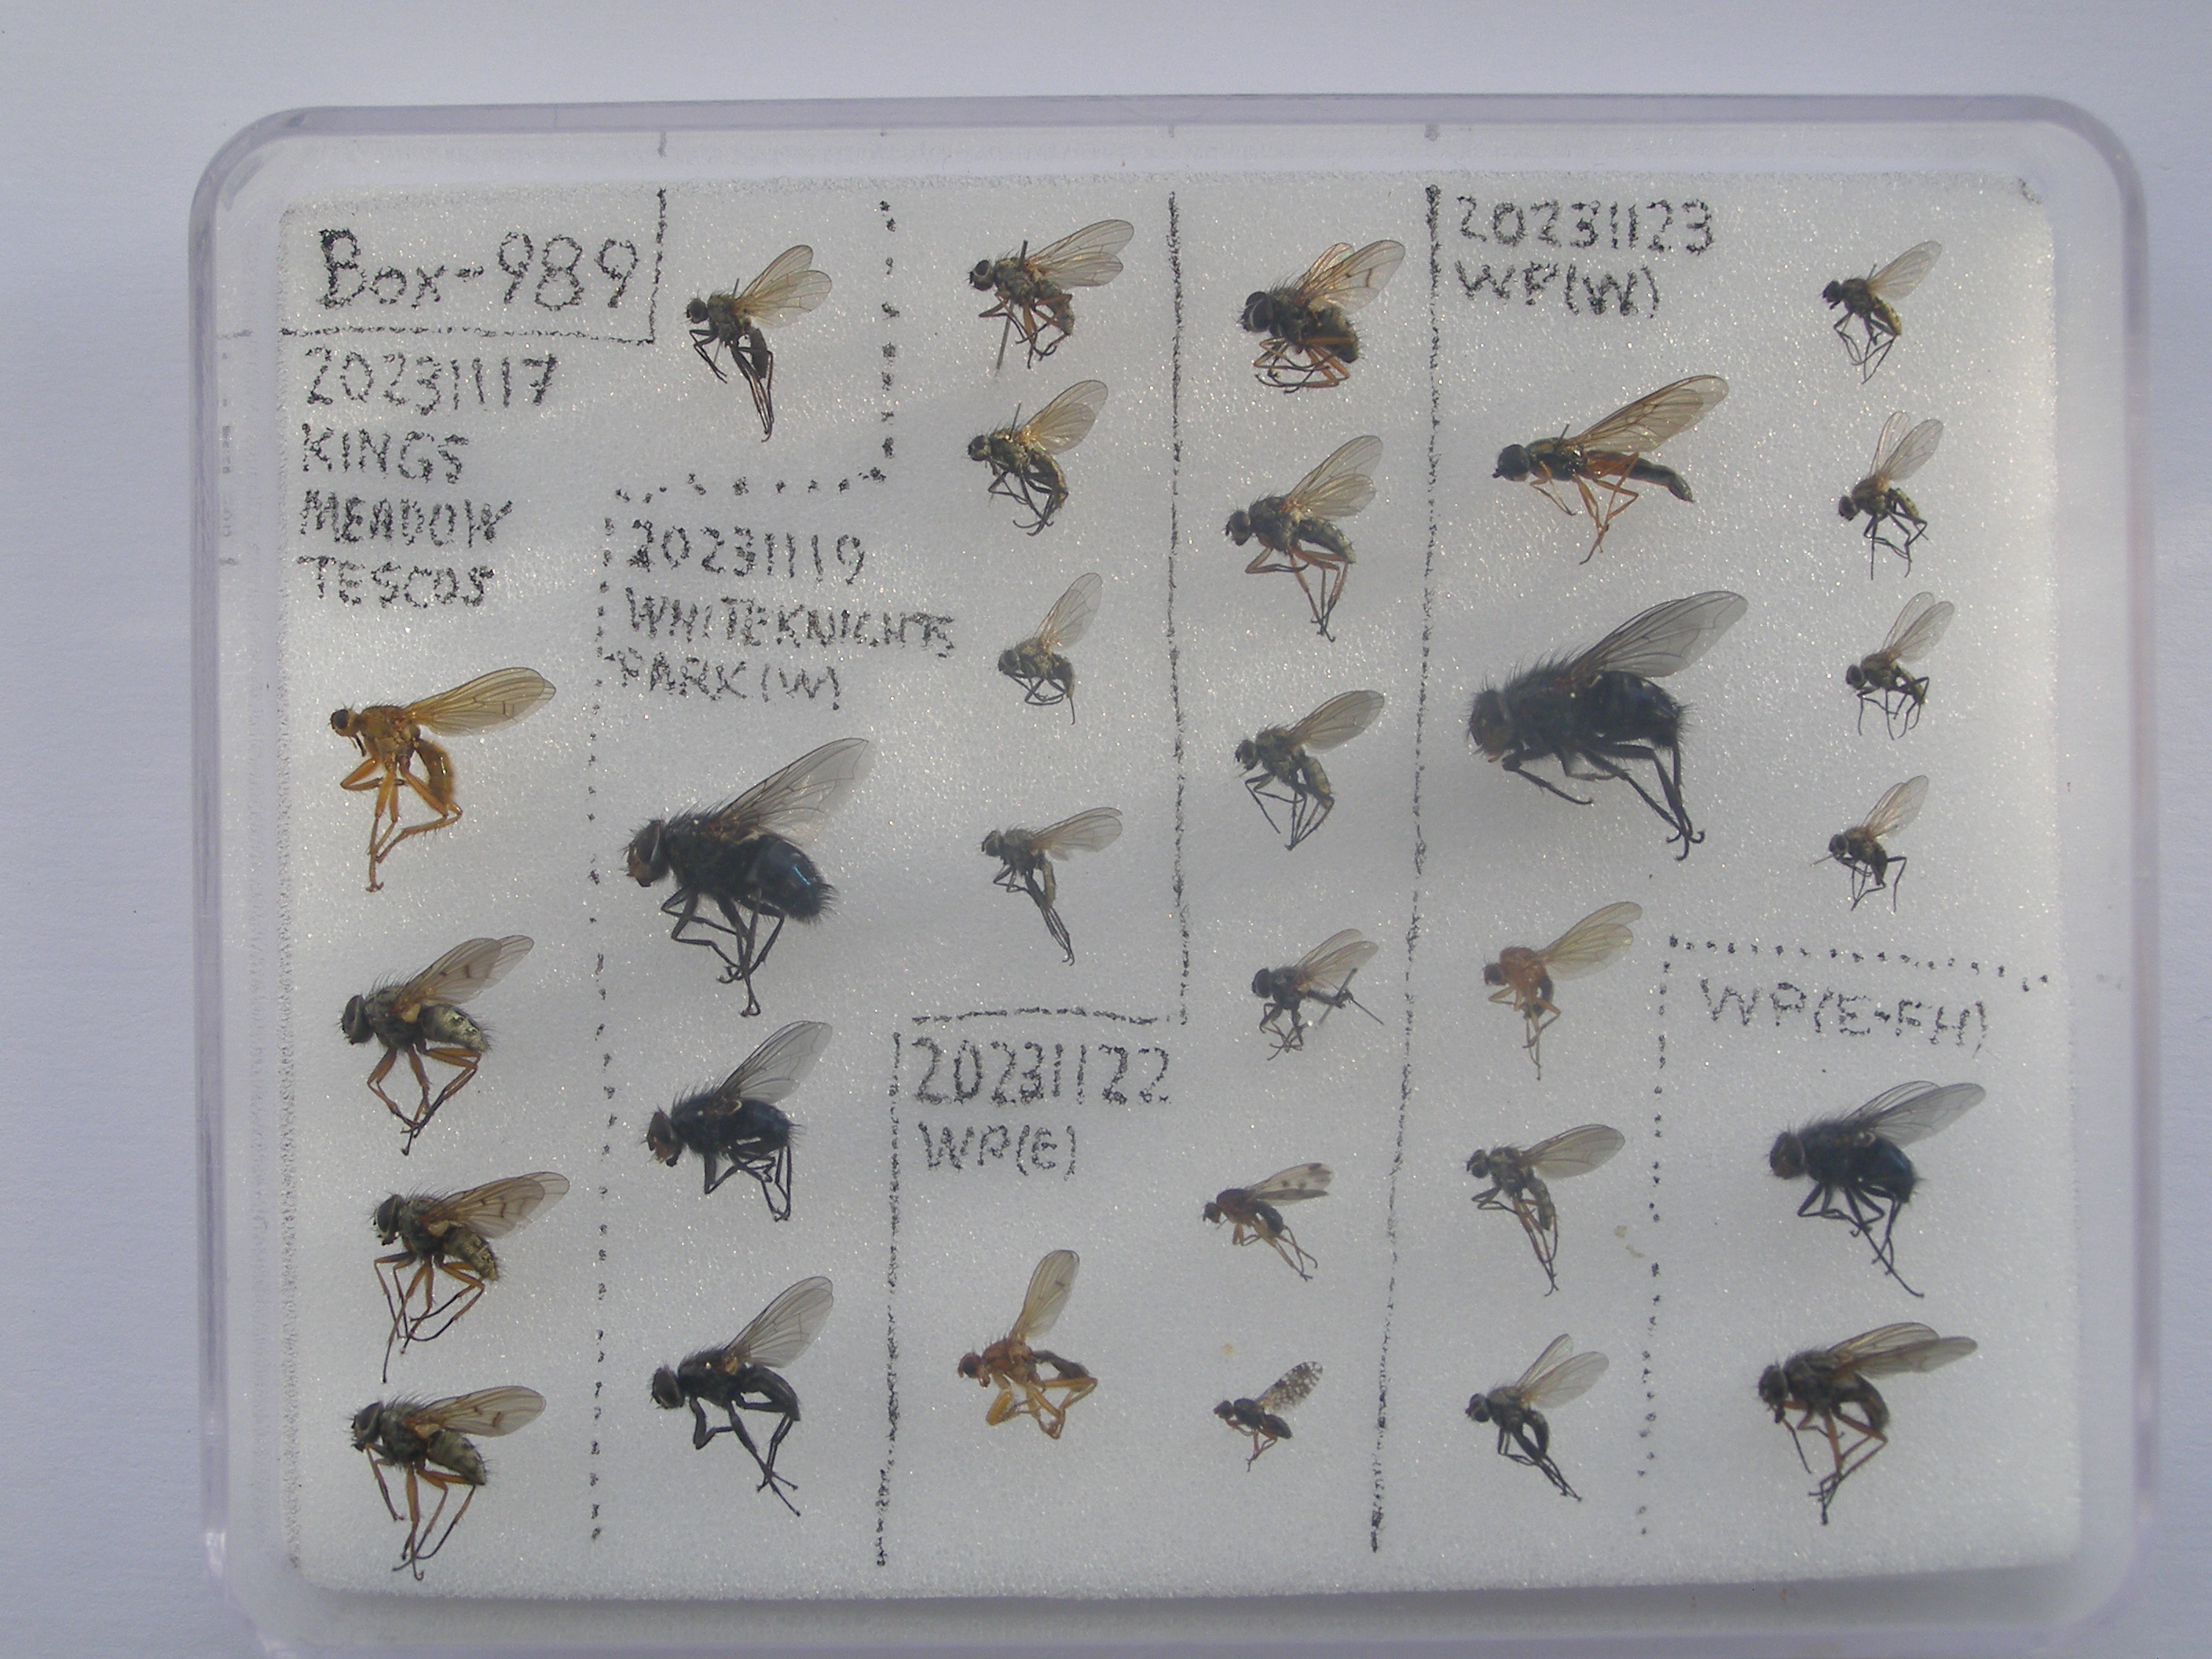 Box-989
20231117
KINGS
MEADOW
TESCOS
20231119
WHITEKNIGHTS
PARK(W)
20231122
WP(E)
20231123
WP(W)
WP(E-FH)